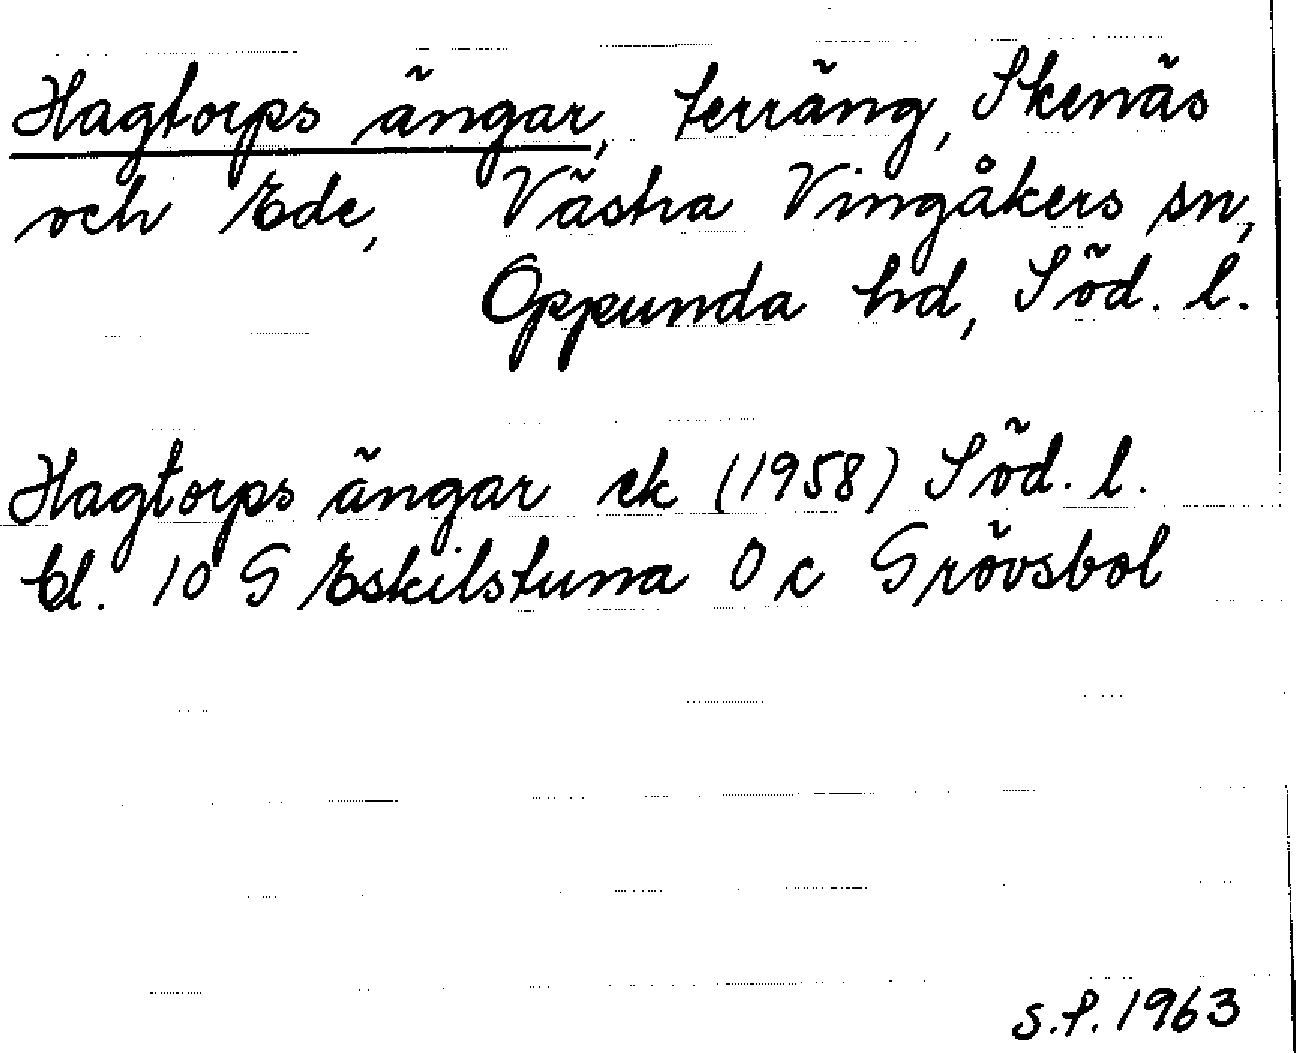 Hagtorps ängar, terräng, Skenäs
och Ede, Västra Vingåkers sn,
Oppunda hd, Söd. l.
Hagtorps ängar ek (1958) Söd. l.
bl. 10 G Eskilstuna O c Grövsbol
S.P. 1963